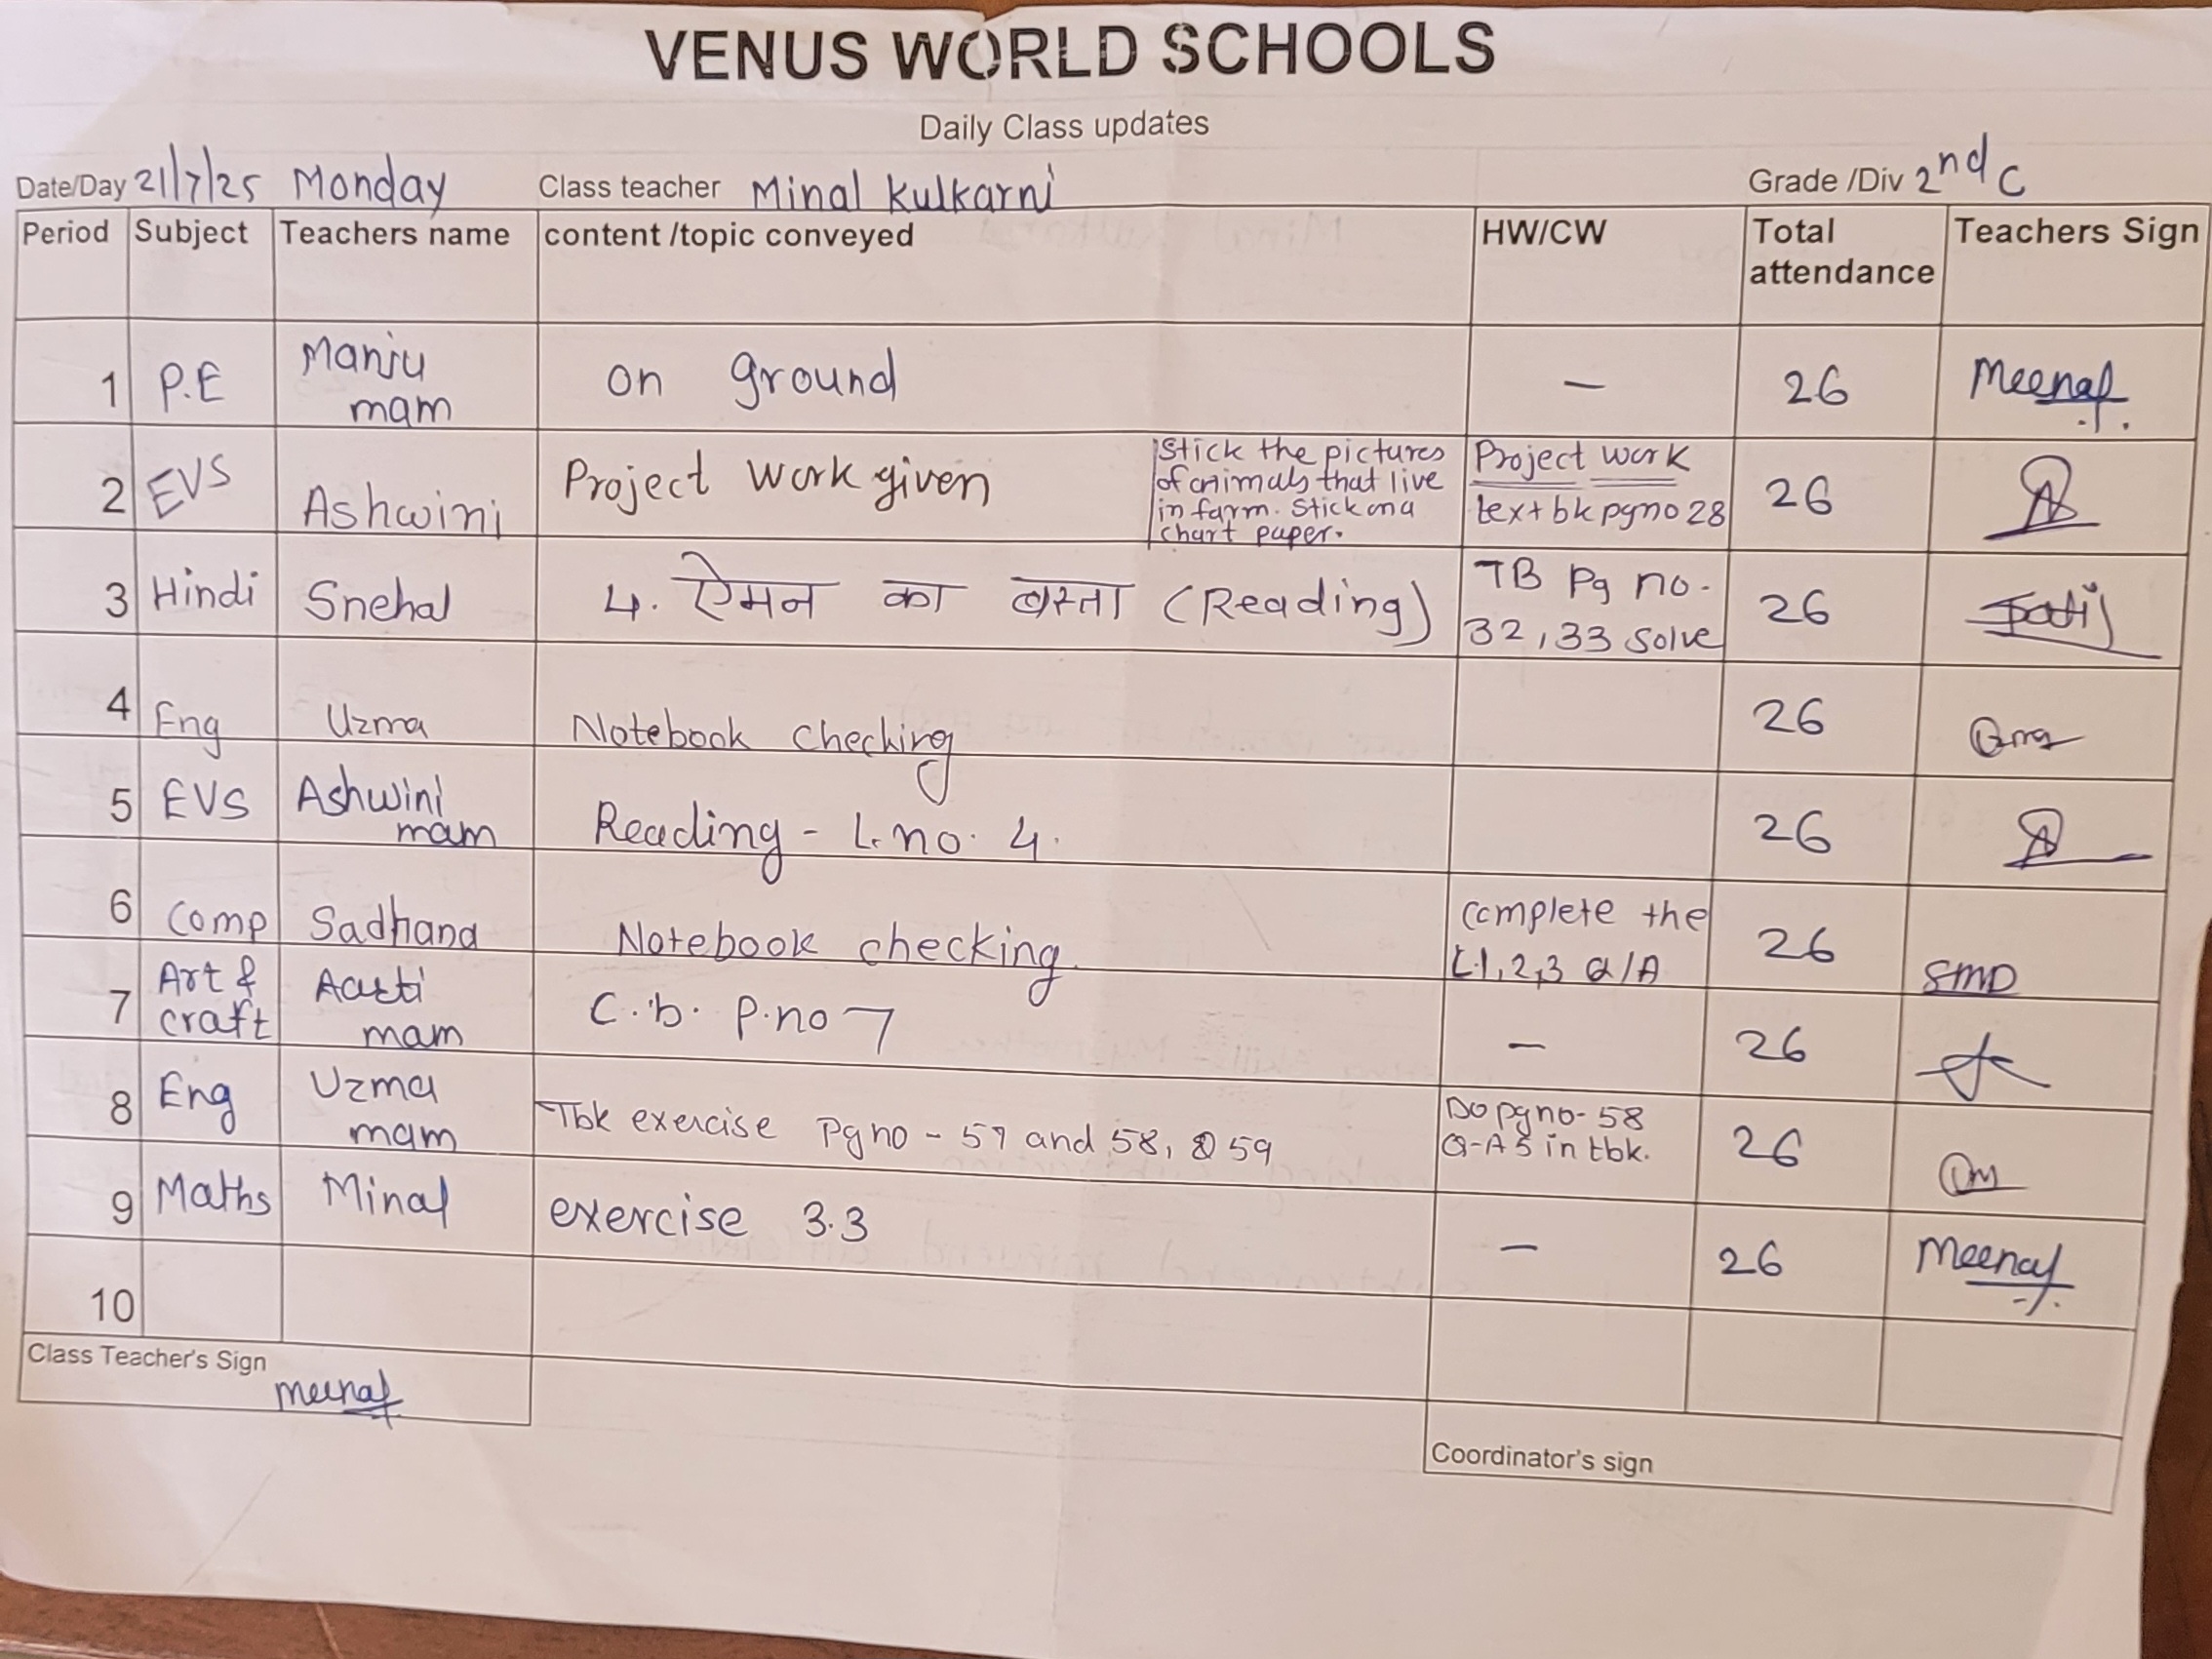 VENUS WORLD SCHOOLS
Daily Class updates
Date/Day 21/7/25 Monday Class teacher Minal Kulkarni Grade /Div 2nd C
Period Subject Teachers name content /topic conveyed HW/CW Total attendance Teachers Sign
1 P.E Manju mam on ground - 26 Meenal
2 EVS Ashwini Project work given Stick the pictures of animals that live in farm. Stick on a chart paper. Project work text bk pg no 28 26
3 Hindi Snehal 4. ऐमन का बस्ता (Reading) TB Pg no. 32, 33 solve 26 Patil
4 Eng Uzma Notebook checking 26
5 EVS Ashwini mam Reading - L. no. 4. 26
6 Comp Sadhana Notebook checking. complete the L.1, 2, 3 Q/A 26 SMD
7 Art & craft Aarti mam C.b. P.no 7 - 26
8 Eng Uzma mam Tbk exercise Pg no - 57 and 58, & 59 Do pg no- 58 Q-A 5 in tbk. 26
9 Maths Minal exercise 3.3 - 26 Meenal
10
Class Teacher's Sign Meenal
Coordinator's sign